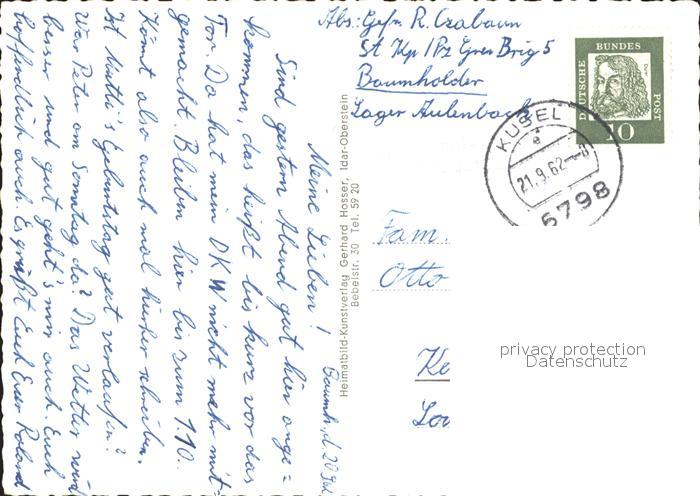 Abs: Gefr. R. Czabaun
St. Kp / Pz Gren Brig 5
Baumholder
Lager Aulenbach
DEUTSCHE BUNDESPOST
Dürer
10
KUSEL
e
21.9.62
6798
Fam.
Otto
Ke
privacy protection
Datenschutz
Heimatbild-Kunstverlag Gerhard Hosser, Idar-Oberstein
Bebelstr. 30 Tel. 59 20
Baumh., d. 20
Meine Lieben!
Sind gestern Abend gut hier ange=
kommen, das heißt bis kurz vor das
Tor. Da hat mein DKW nicht mehr mit
gemacht. Bleiben hier bis zum 1.10.
Könnt also auch mal hierher schreiben.
Ist Mutti's Geburtstag gut verlaufen?
War Peter am Sonntag da? Das Wetter wird
besser und gut geht's mir auch. Euch
hoffendlich auch. Es grüßt Euch Euer Roland